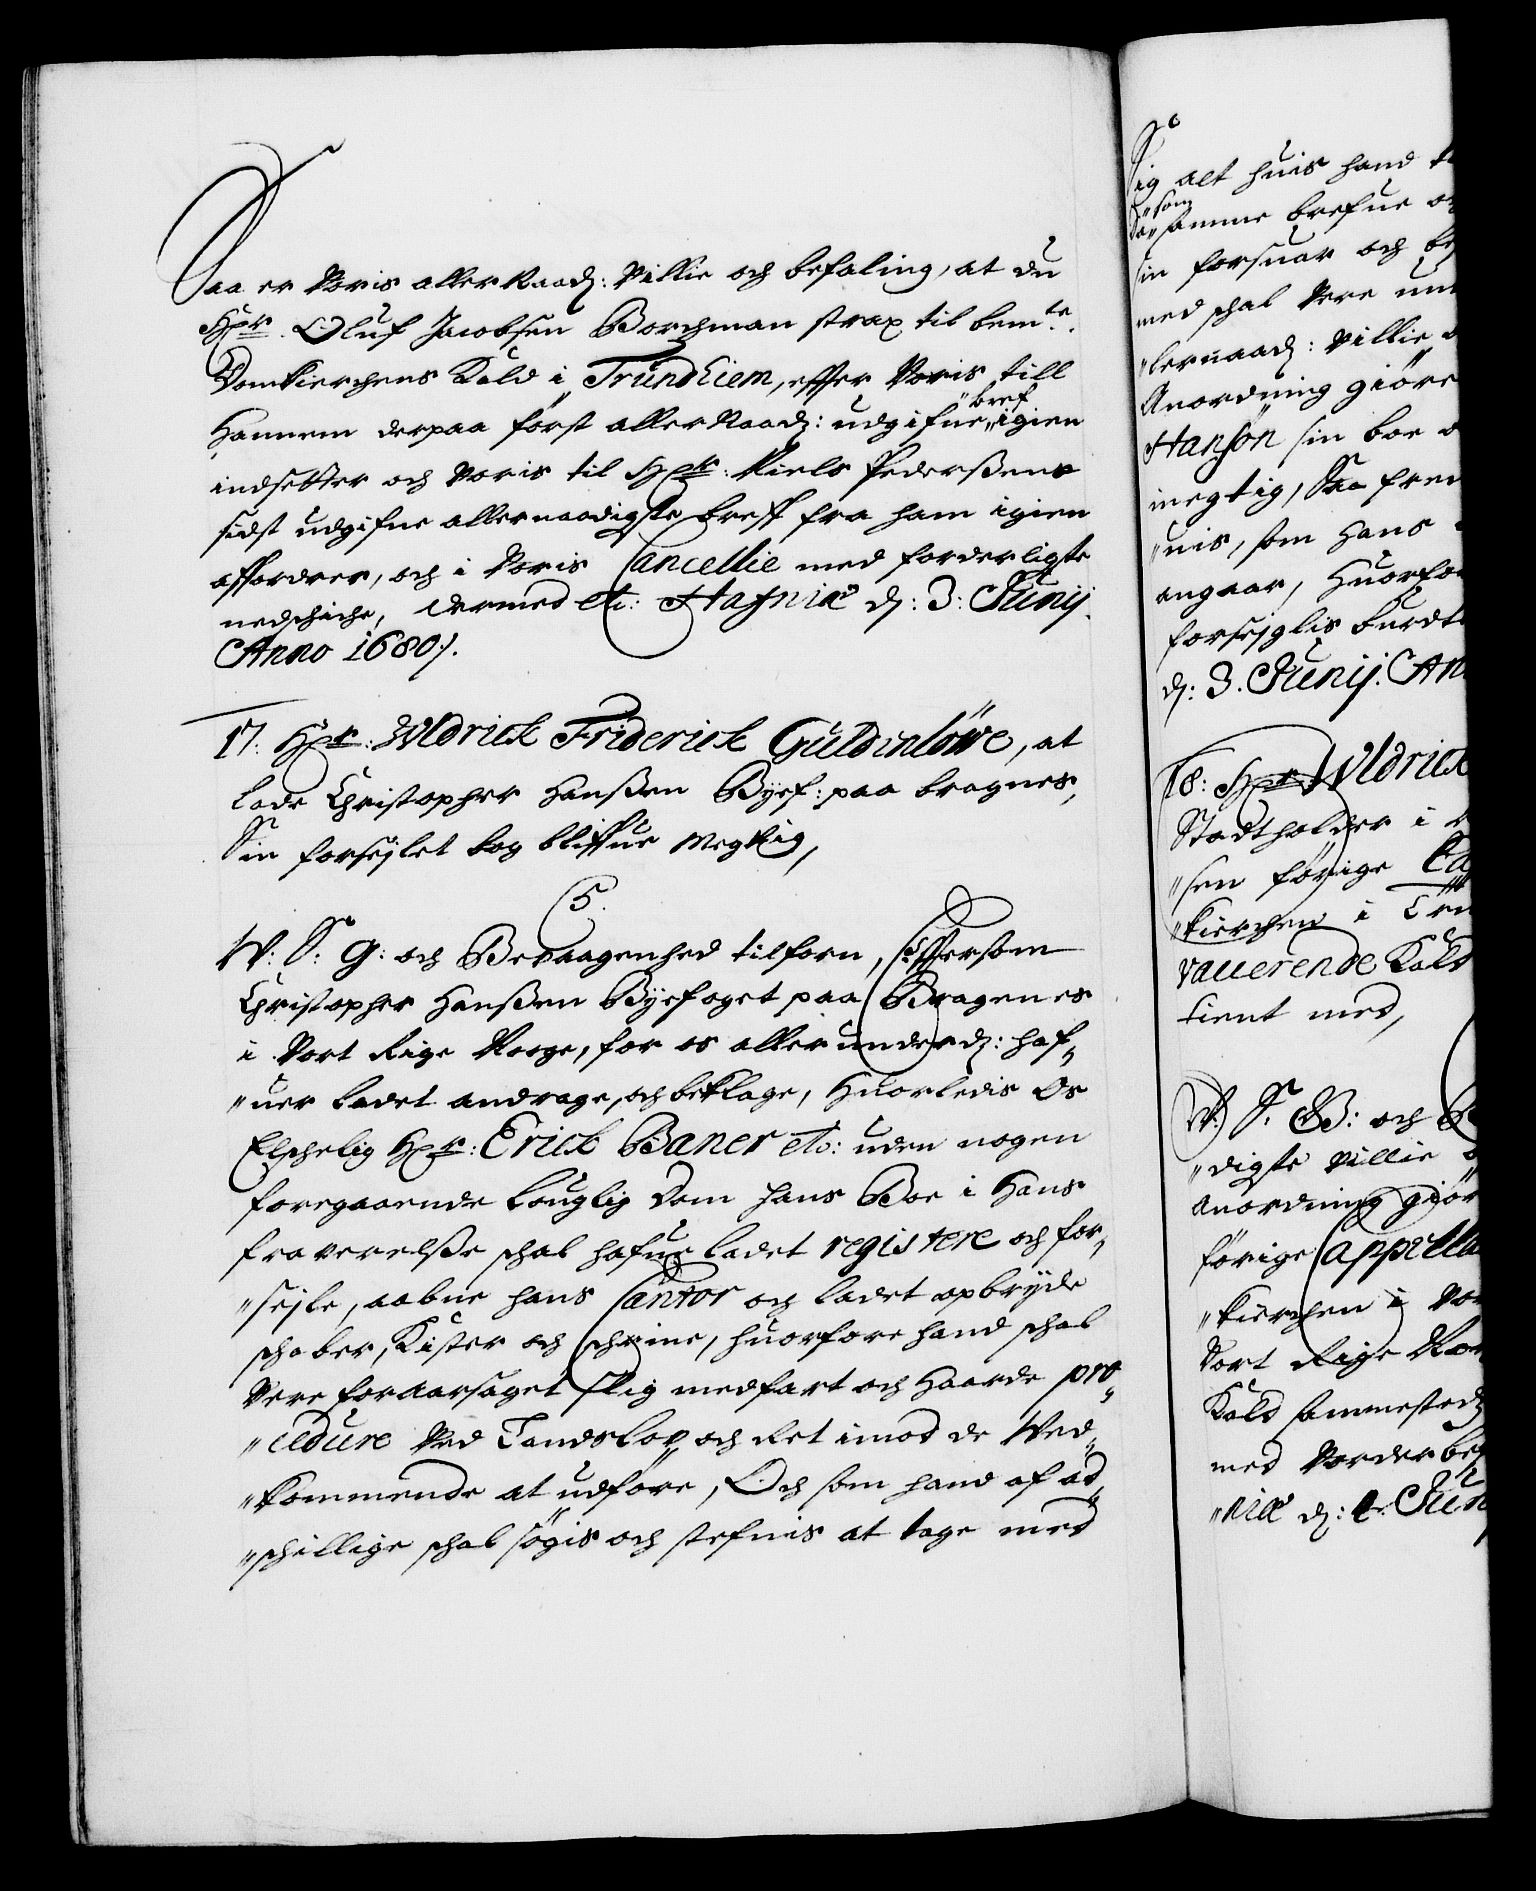 Saa er Voris allerNaad: Villie och befaling, at du
Hr: Oluf Jacobsen Borchman strax til bemte:
Domkierchens Kald i Trundhiem, effter Voris till
hannem derpaa först allerNaad: udgifne bref igien
indsetter och Voris til Hr: Niels Pederßens
sidst udgifne allernaadigste breff fra ham igien
affordrer, och i Voris Cancellie med forderligste
nedschicke, dermed etc: Hafniæ d: 3: Junij
Anno 1680/.
17: Hr: Wldrick Friderick Guldinlöwe, at
lade Christopher Hanßen Byef: paa bragnes,
Sin forsejlet boe bliffue megtig,
5.
W: S: G: och Bevaagenhed tilforn, Effersom
Christopher Hanßen Byefoget paa Bragenes
i Vort Rige Norge, for os allerunderd: haf-
"uer ladet andrage, och beklage, huorledis Os
Elschelig Hr: Erick Baner etc: uden nogen
foregaaende louglig dom hans Boe i hans
fraverelße schal hafue ladet registere och for-
"sejle, aabne hans Cantor och ladet opbryde
schaber, Kister och schrine, huorfore hand schal
Vere foraarsaget slig medfart och haarde pro-
"cedure Ved Landslov och Ret imod de Ved-
"kommende at udföre, Och som hand af ad-
"schillige schal søgis och stefnis at tage med
Sig alt huis hand
som
samme brefue
sin forsuar och
med schal Vere
"lernaad: Villie
Anordning giöre
Hansön sin boe
megtig, Saa
"nis, som hans
angaar, Huorfor
forsejglis
d: 3. Junij. An
18: Hr Wldrick
Stadtholder i
"sen förige
"kierchen i
vacerende Kald
tient med,
W: S. G: och
"digste Villie
Anordning giör
förige Capella
"kierchen i
Vort Rige
Kald sammested
med Vorder
"niæ d: Jun